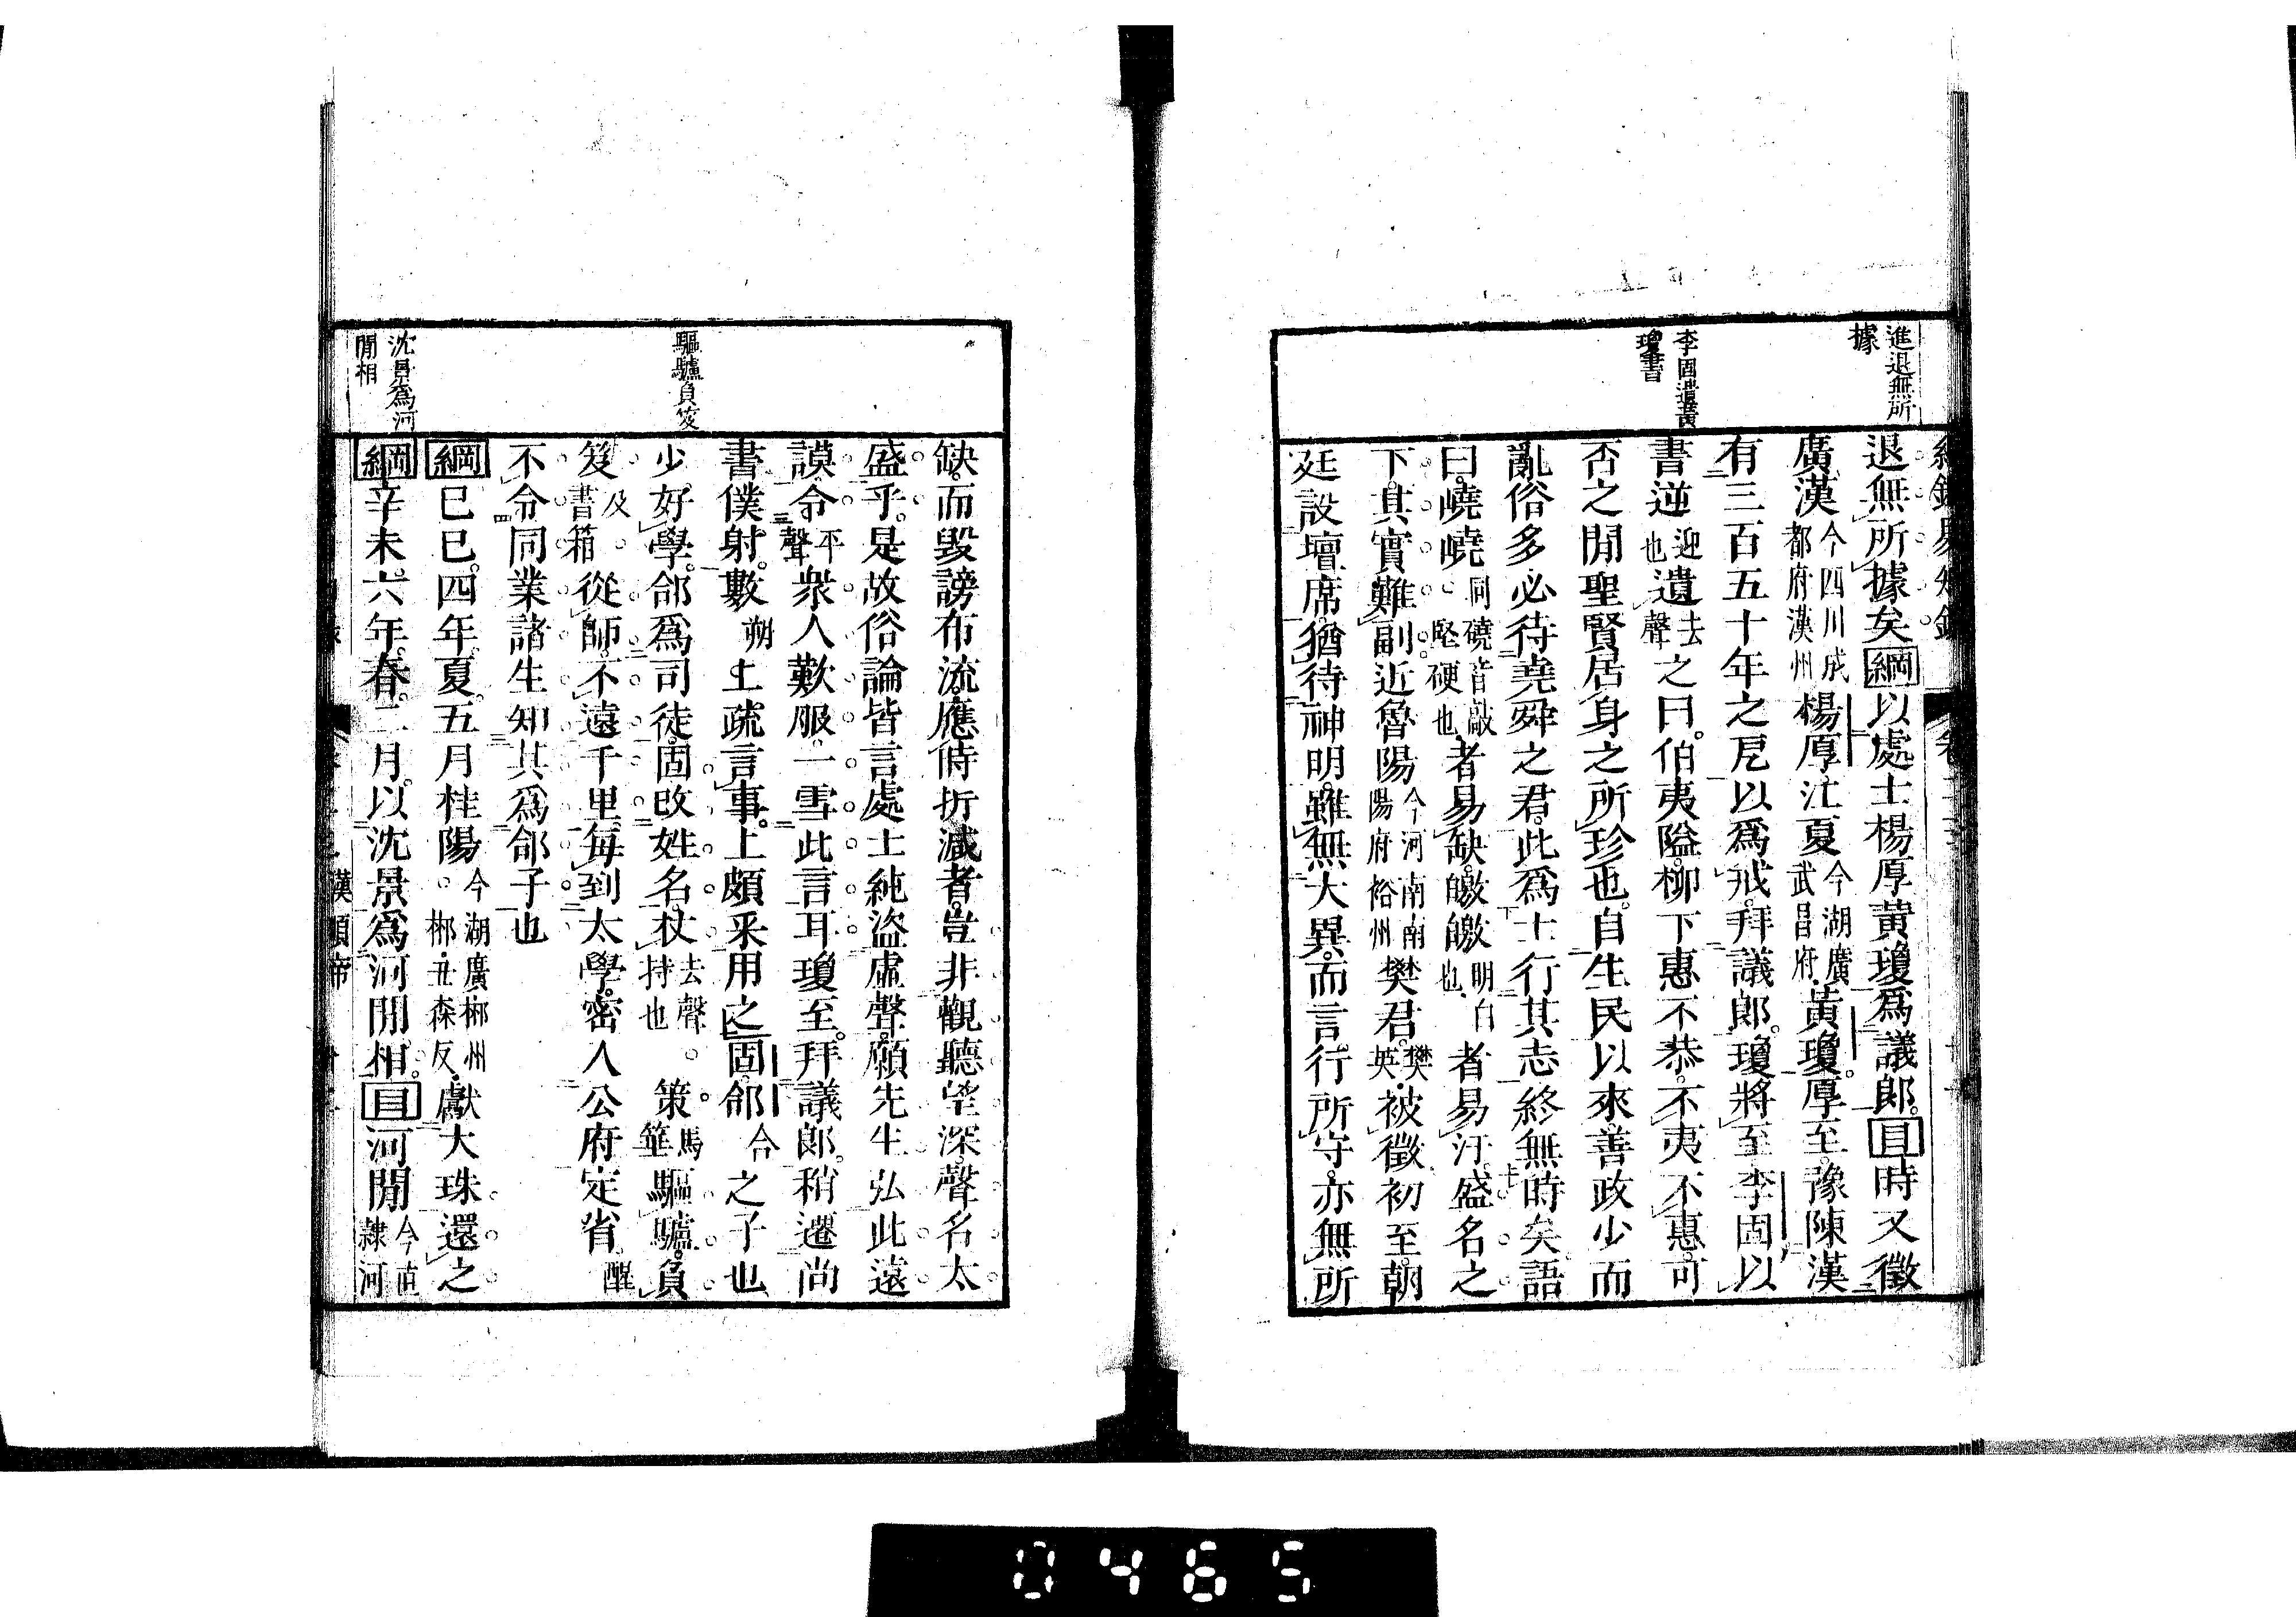 進退無所
據
李固遺黃
瓊書
退無所據矣綱以處士楊厚黃瓊爲議郎目時又徵
廣漢今四川成都府漢州楊厚江夏今湖廣武昌府黃瓊厚至豫陳漢
有三百五十年之戹以爲戒拜議郎瓊將至李固以
書逆迎也遺去聲之曰伯夷隘柳下惠不恭不夷不惠可
否之閒聖賢居身之所珍也自生民以來善政少而
亂俗多必待堯舜之君此爲士行其志終無時矣語
曰嶢嶢同磽音敲堅硬也者易缺皦皦明白也者易汙盛名之
下其實難副近魯陽今河南南陽府裕州樊君樊英被徵初至朝
廷設壇席猶待神明雖無大異而言行所守亦無所
驅驢負笈
沈景爲河
閒相
缺而毀謗布流應時折減者豈非觀聽望深聲名太
盛乎是故俗論皆言處士純盜虛聲願先生弘此遠
謨令平聲衆人歎服一雪此言耳瓊至拜議郎稍遷尚
書僕射數朔上疏言事上頗采用之固郃合之子也
少好學郃爲司徒固改姓名杖去聲持也策馬箠驅驢負
笈及書箱從師不遠千里每到太學密入公府定省醒
不令同業諸生知其爲郃子也
綱己巳四年夏五月桂陽今湖廣郴州郴丑森反獻大珠還之
綱辛未六年春二月以沈景爲河閒相目河閒今直隸河
漢順帝
0465